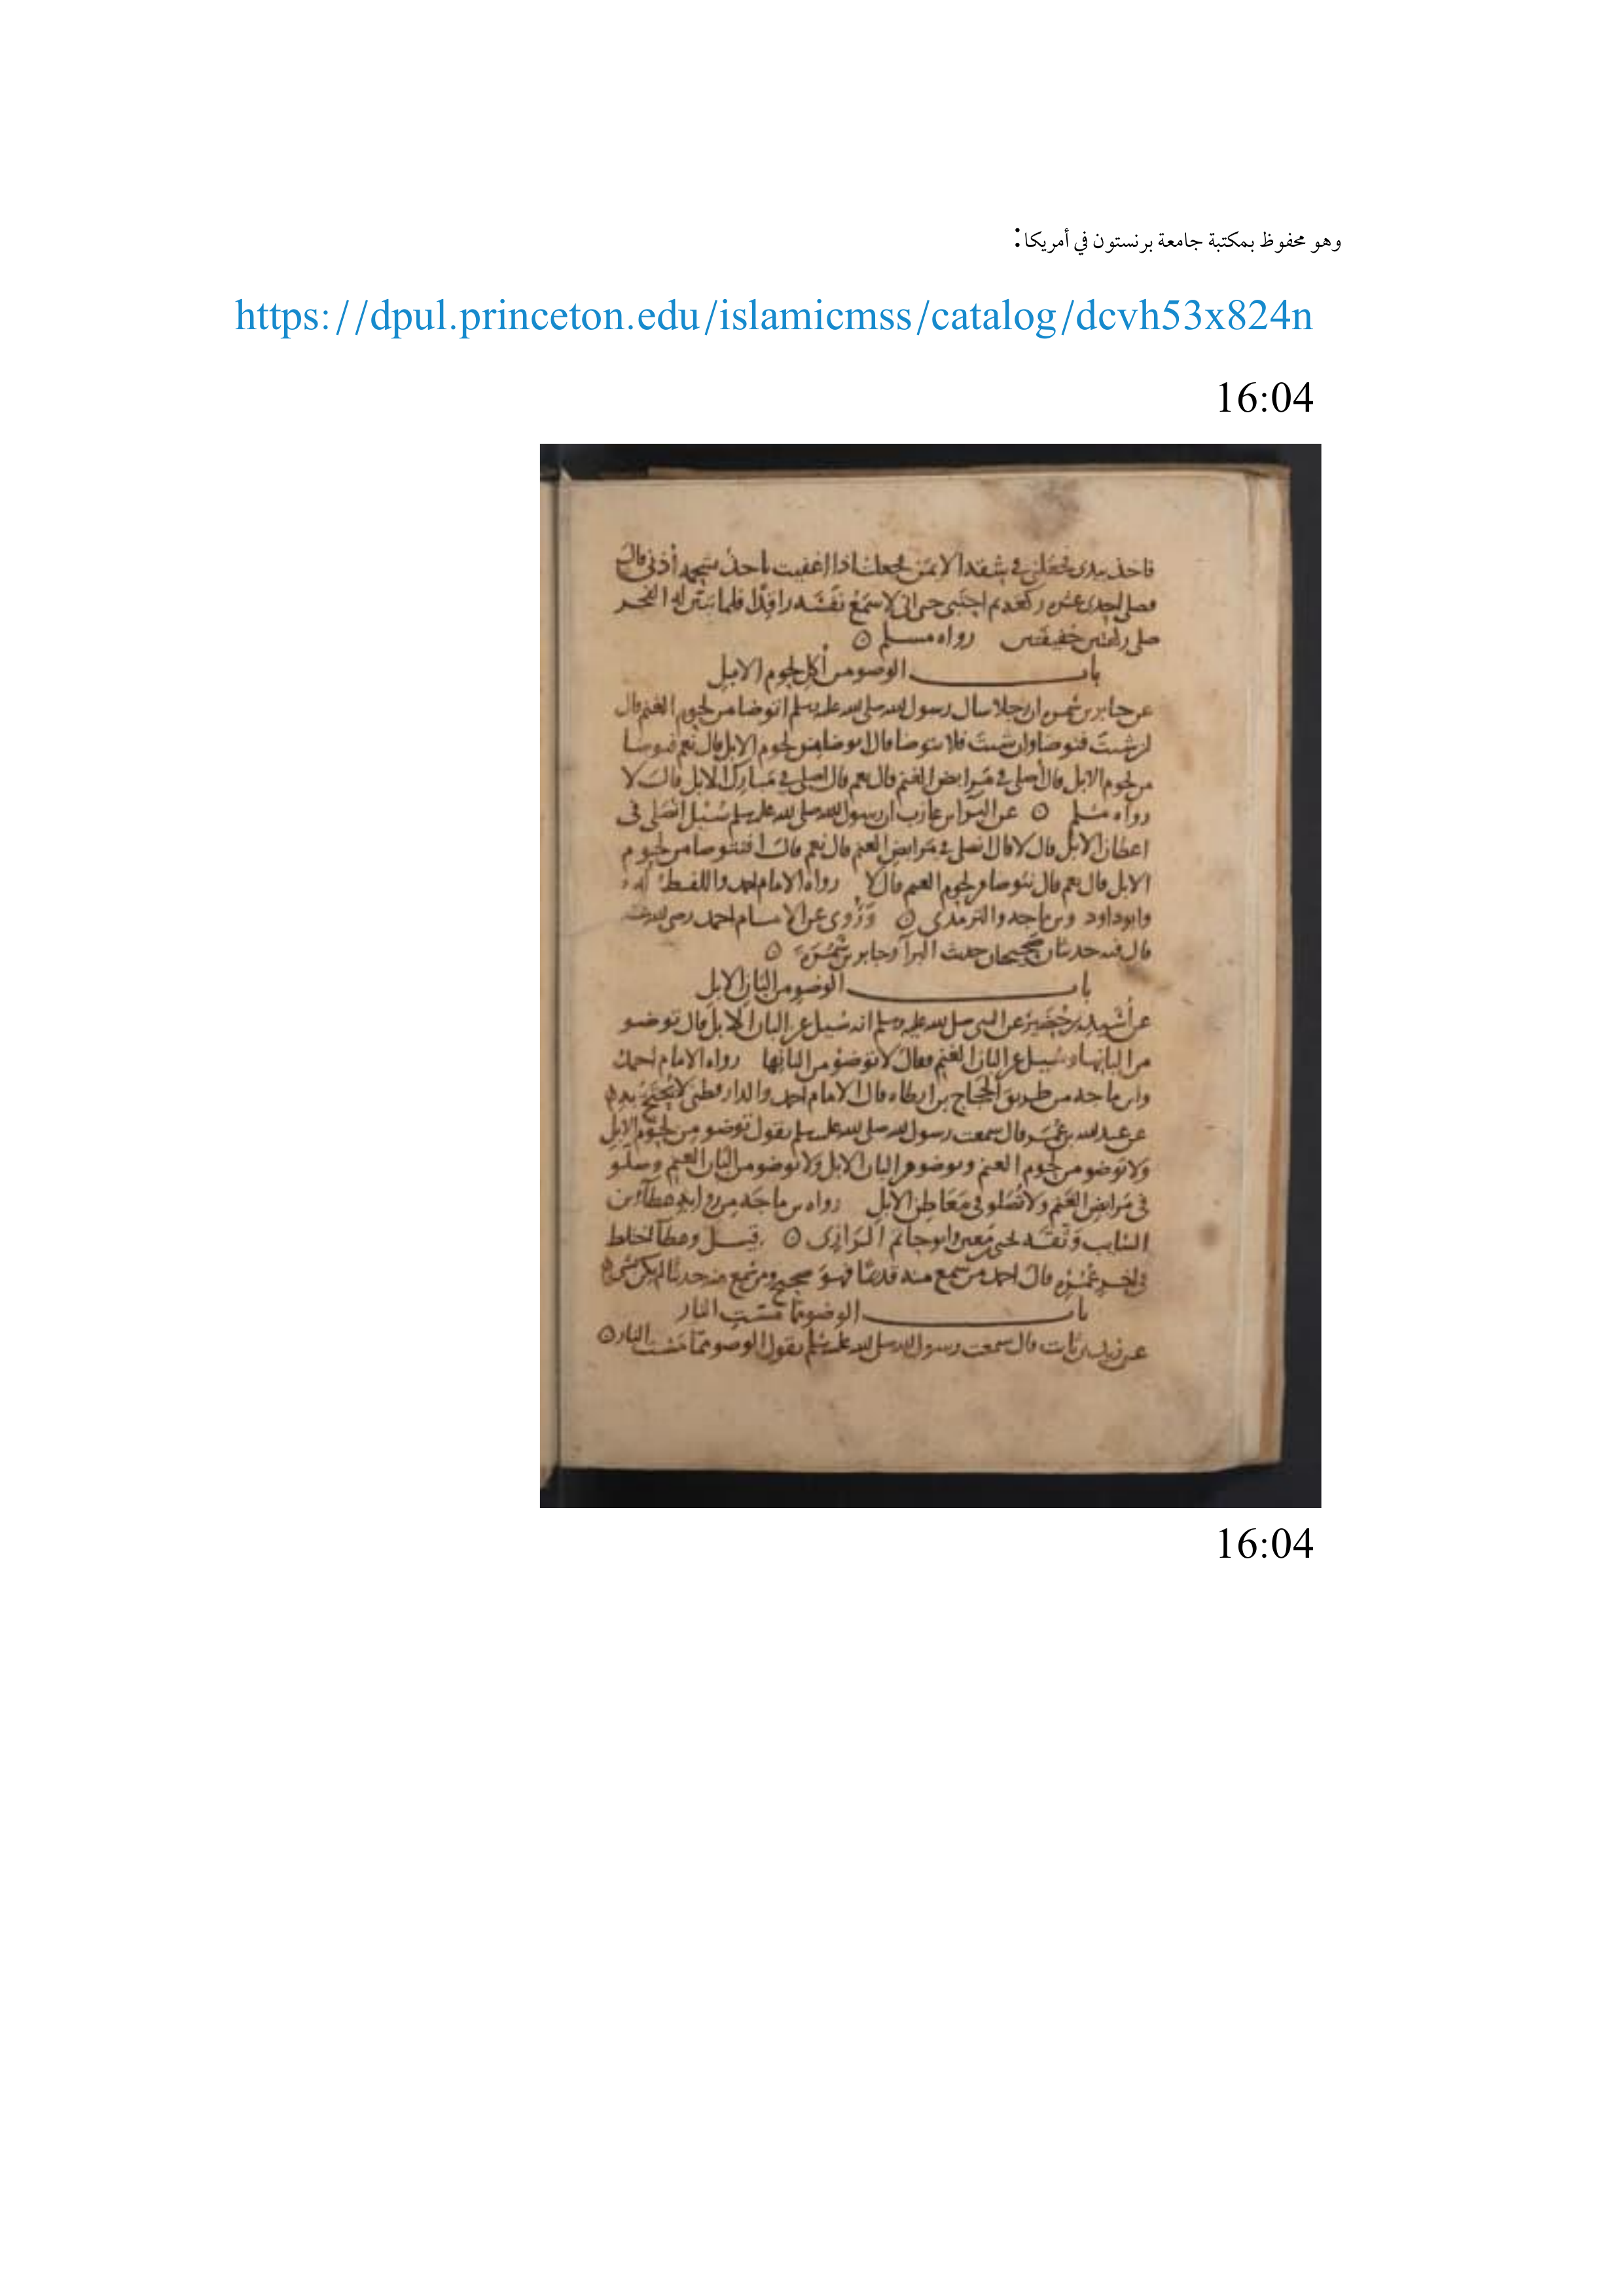 وهو محفوظ بمكتبة جامعة برنستون في أمريكا:
https://dpul.princeton.edu/islamicmss/catalog/dcvh53x824n
16:04
فاخذ بيدى فجعلنى فى شقه الايمن فجعلت اذا اغفيت ياخذ بشحمه أذنى قال
فصلى احدى عشره ركعه ثم احتبى حتى انى لاسمع نفسه راقدا فلما تبين له الفجر
صلى ركعتين خفيفتين رواه مسلم ۞
باب الوضو من أكل لحوم الابل
عن جابر بن سمره ان رجلا سال رسول الله صلى الله عليه وسلم انتوضا من لحوم الغنم قال
ان شيت فتوضا وان شيت فلا تتوضا قال انتوضا من لحوم الابل قال نعم فتوضا
من لحوم الابل قال أصلى فى مرابض الغنم قال نعم قال اصلى فى مبارك الابل قال لا
رواه مسلم ۞ عن البرا بن عازب ان رسول الله صلى الله عليه وسلم سيل انصلى فى
اعطان الابل قال لا قال انصلى فى مرابض الغنم قال نعم قال افنتوضا من لحوم
الابل قال نعم قال نتوضا من لحوم الغنم قال لا رواه الامام احمد واللفظ له
وابو داود وبن ماجه والترمذى ۞ وروى عن الامام احمد رضى الله عنه
قال فيه حديثان صحيحان حديث البرآ وجابر بن سمره ۞
باب الوضو من البان الابل
عن أسيد بن حضير عن النبى صلى الله عليه وسلم انه سيل عن البان الابل قال توضو
من البانها وسيل عن البان الغنم فقال لا توضو من البانها رواه الامام احمد
وابن ماجه من طريق الحجاج بن ارطاه قال الامام احمد والدارقطنى لا يحتج به ۞
عن عبد الله بن عمر قال سمعت رسول الله صلى الله عليه وسلم يقول توضو من لحوم الابل
ولا توضو من لحوم الغنم وتوضو من البان الابل ولا توضو من البان الغنم وصلو
فى مرابض الغنم ولا تصلو فى معاطن الابل رواه بن ماجه من روايه عطآ بن
السايب وثقه يحيى بن معين وابو حاتم الرازى ۞ قيل وعطآ اختلط
فى اخر عمره قال احمد من سمع منه قديما فهو صحيح ومن سمع منه حديثا لم يكن بشى ۞
باب الوضو مما مست النار
عن زيد بن ثابت قال سمعت رسول الله صلى الله عليه وسلم يقول الوضو مما مست النار ۞
16:04